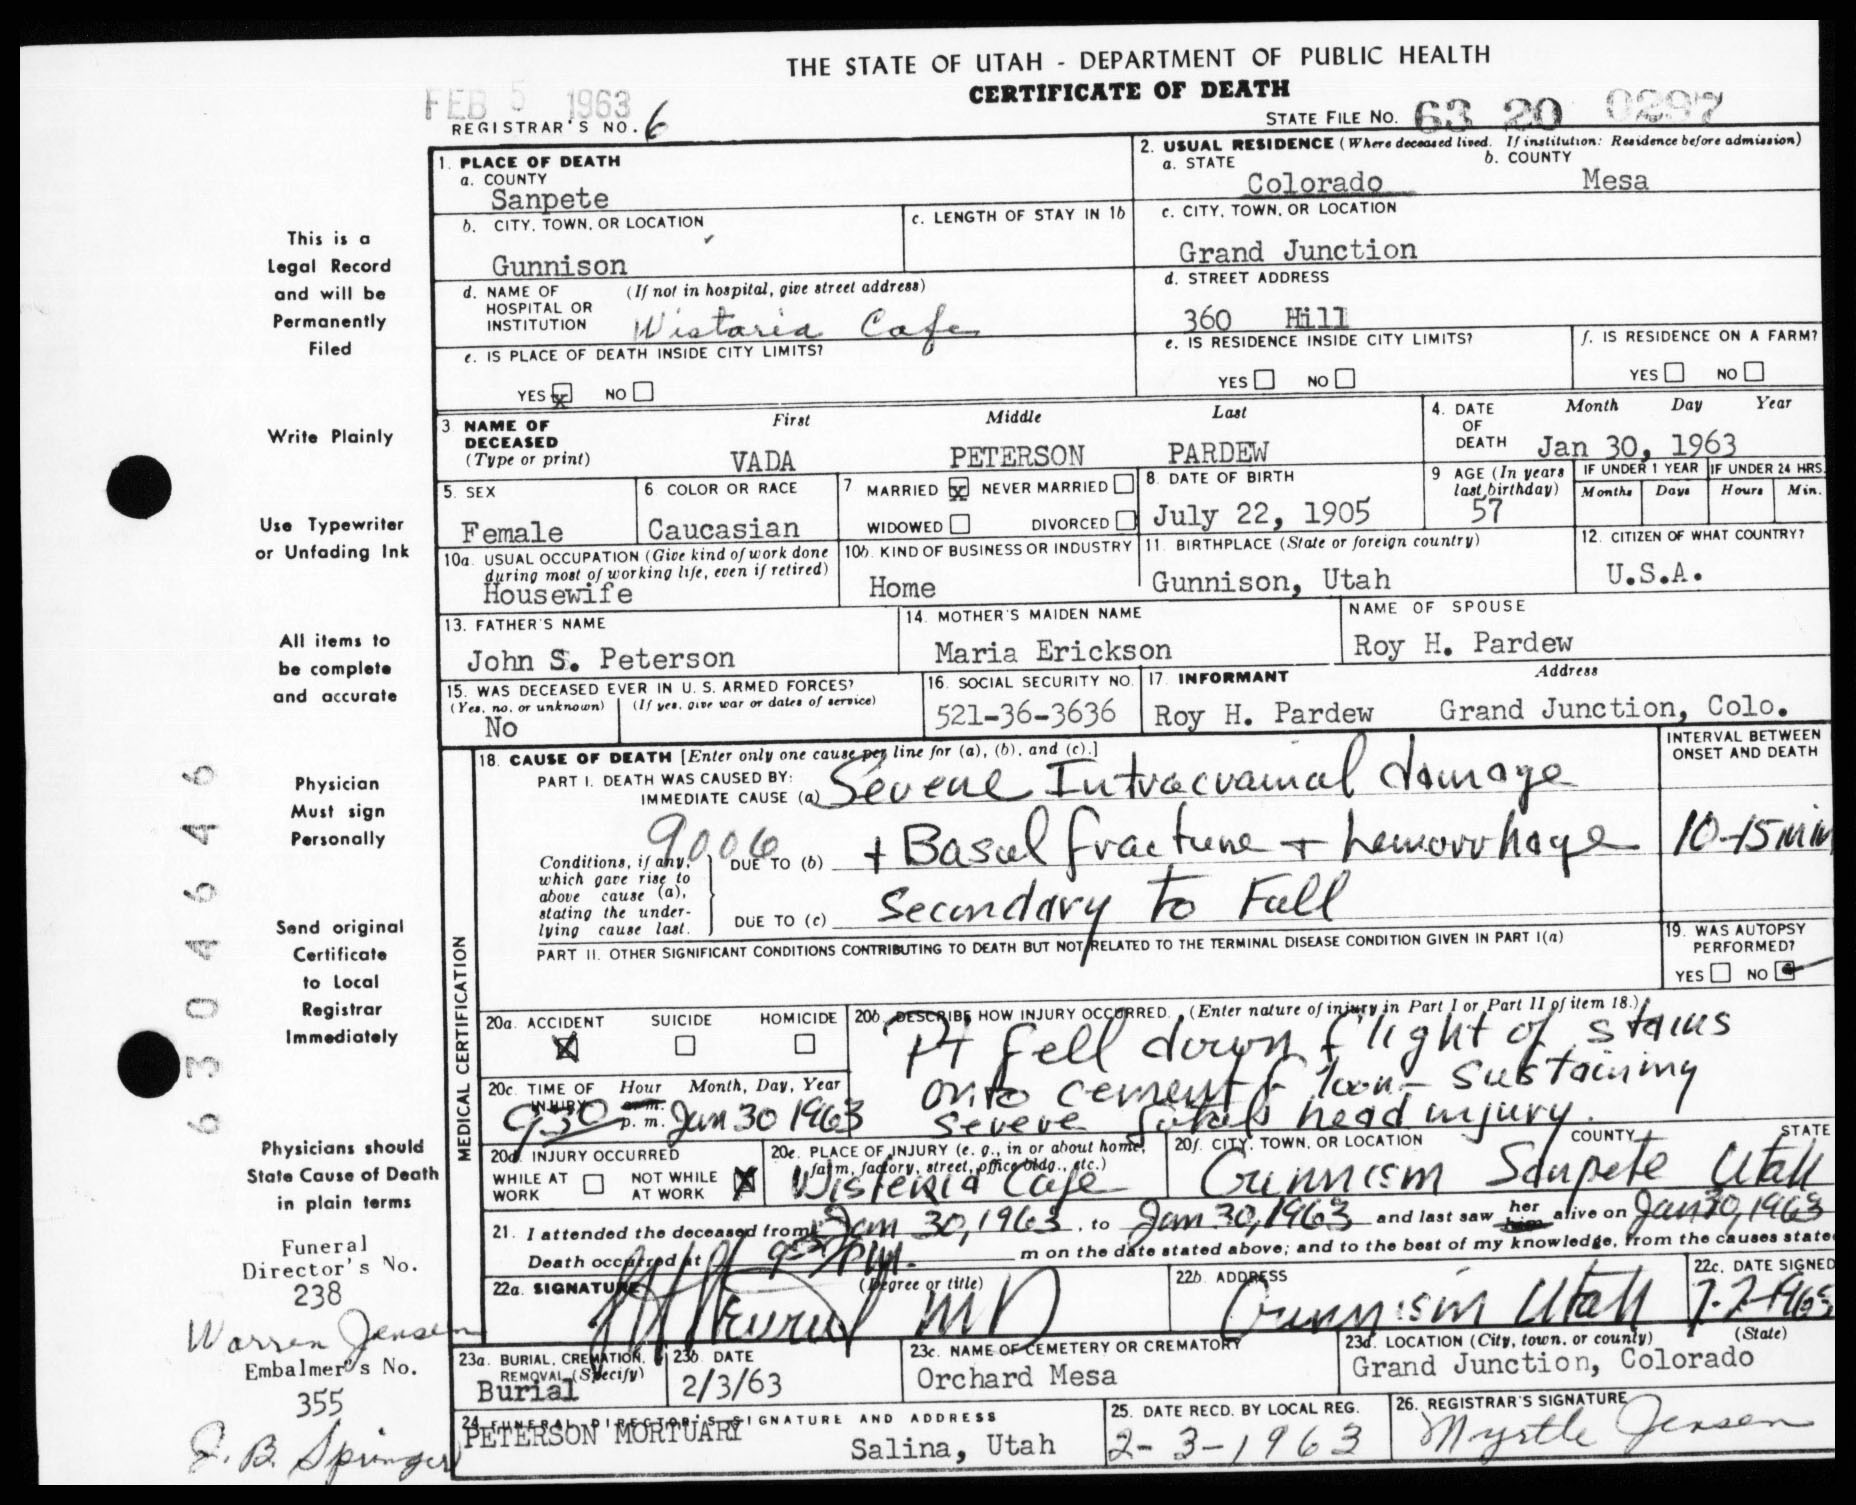 THE STATE OF UTAH - DEPARTMENT OF PUBLIC HEALTH
CERTIFICATE OF DEATH
FEB 5 1963
REGISTRAR'S NO. 6
STATE FILE NO. 63 20 0297
1. PLACE OF DEATH
a. COUNTY
Sanpete
2. USUAL RESIDENCE (Where deceased lived. If institution: Residence before admission)
a. STATE
Colorado
b. COUNTY
Mesa
b. CITY, TOWN, OR LOCATION
Gunnison
c. LENGTH OF STAY IN 1b
c. CITY, TOWN, OR LOCATION
Grand Junction
d. NAME OF HOSPITAL OR INSTITUTION
(If not in hospital, give street address)
Wistaria Cafe
d. STREET ADDRESS
360 Hill
e. IS PLACE OF DEATH INSIDE CITY LIMITS?
YES x NO
e. IS RESIDENCE INSIDE CITY LIMITS?
YES NO
f. IS RESIDENCE ON A FARM?
YES NO
3 NAME OF DECEASED
(Type or print)
First Middle Last
VADA PETERSON PARDEW
4. DATE OF DEATH
Month Day Year
Jan 30, 1963
5. SEX
Female
6 COLOR OR RACE
Caucasian
7 MARRIED x NEVER MARRIED
WIDOWED DIVORCED
8. DATE OF BIRTH
July 22, 1905
9 AGE (In years last birthday)
57
IF UNDER 1 YEAR
Months Days
IF UNDER 24 HRS.
Hours Min.
10a. USUAL OCCUPATION (Give kind of work done during most of working life, even if retired)
Housewife
10b. KIND OF BUSINESS OR INDUSTRY
Home
11. BIRTHPLACE (State or foreign country)
Gunnison, Utah
12. CITIZEN OF WHAT COUNTRY?
U.S.A.
13. FATHER'S NAME
John S. Peterson
14. MOTHER'S MAIDEN NAME
Maria Erickson
NAME OF SPOUSE
Roy H. Pardew
15. WAS DECEASED EVER IN U. S. ARMED FORCES?
(Yes, no, or unknown) (If yes, give war or dates of service)
No
16. SOCIAL SECURITY NO.
521-36-3636
17. INFORMANT
Address
Roy H. Pardew Grand Junction, Colo.
MEDICAL CERTIFICATION
18. CAUSE OF DEATH [Enter only one cause per line for (a), (b), and (c).]
INTERVAL BETWEEN ONSET AND DEATH
PART I. DEATH WAS CAUSED BY:
IMMEDIATE CAUSE (a) Severe Intracranial damage
9006
Conditions, if any, which gave rise to above cause (a), stating the underlying cause last.
DUE TO (b) + Basal fracture + hemorrhage
10-15 min
DUE TO (c) Secondary to Fall
PART II. OTHER SIGNIFICANT CONDITIONS CONTRIBUTING TO DEATH BUT NOT RELATED TO THE TERMINAL DISEASE CONDITION GIVEN IN PART I(a)
19. WAS AUTOPSY PERFORMED?
YES NO
20a. ACCIDENT SUICIDE HOMICIDE
20b. DESCRIBE HOW INJURY OCCURRED. (Enter nature of injury in Part I or Part II of item 18.)
Pt fell down flight of stairs
onto cement floor - sustaining
severe fatal head injury.
20c. TIME OF INJURY
Hour Month, Day, Year
a.m.
p.m.
930 Jan 30 1963
20d. INJURY OCCURRED
WHILE AT WORK NOT WHILE AT WORK
20e. PLACE OF INJURY (e. g., in or about home, farm, factory, street, office bldg., etc.)
Wisteria Cafe
20f. CITY, TOWN, OR LOCATION COUNTY STATE
Gunnison Sanpete Utah
21. I attended the deceased from Jan 30, 1963, to Jan 30, 1963 and last saw her him alive on Jan 30, 1963
Death occurred at m on the date stated above; and to the best of my knowledge, from the causes state
22a. SIGNATURE
(Degree or title)
MD
22b. ADDRESS
Gunnison Utah
22c. DATE SIGNED
23a. BURIAL, CREMATION, REMOVAL (Specify)
Burial
23b. DATE
2/3/63
23c. NAME OF CEMETERY OR CREMATORY
Orchard Mesa
23d. LOCATION (City, town, or county) (State)
Grand Junction, Colorado
24. FUNERAL DIRECTOR'S SIGNATURE AND ADDRESS
PETERSON MORTUARY
Salina, Utah
25. DATE RECD. BY LOCAL REG.
2-3-1963
26. REGISTRAR'S SIGNATURE
Myrtle Jensen
This is a
Legal Record
and will be
Permanently
Filed
Write Plainly
Use Typewriter
or Unfading Ink
All items to
be complete
and accurate
Physician
Must sign
Personally
Send original
Certificate
to Local
Registrar
Immediately
Physicians should
State Cause of Death
in plain terms
Funeral
Director's No.
238
Warren Jensen
Embalmer's No.
355
J. B. Springer
6304646